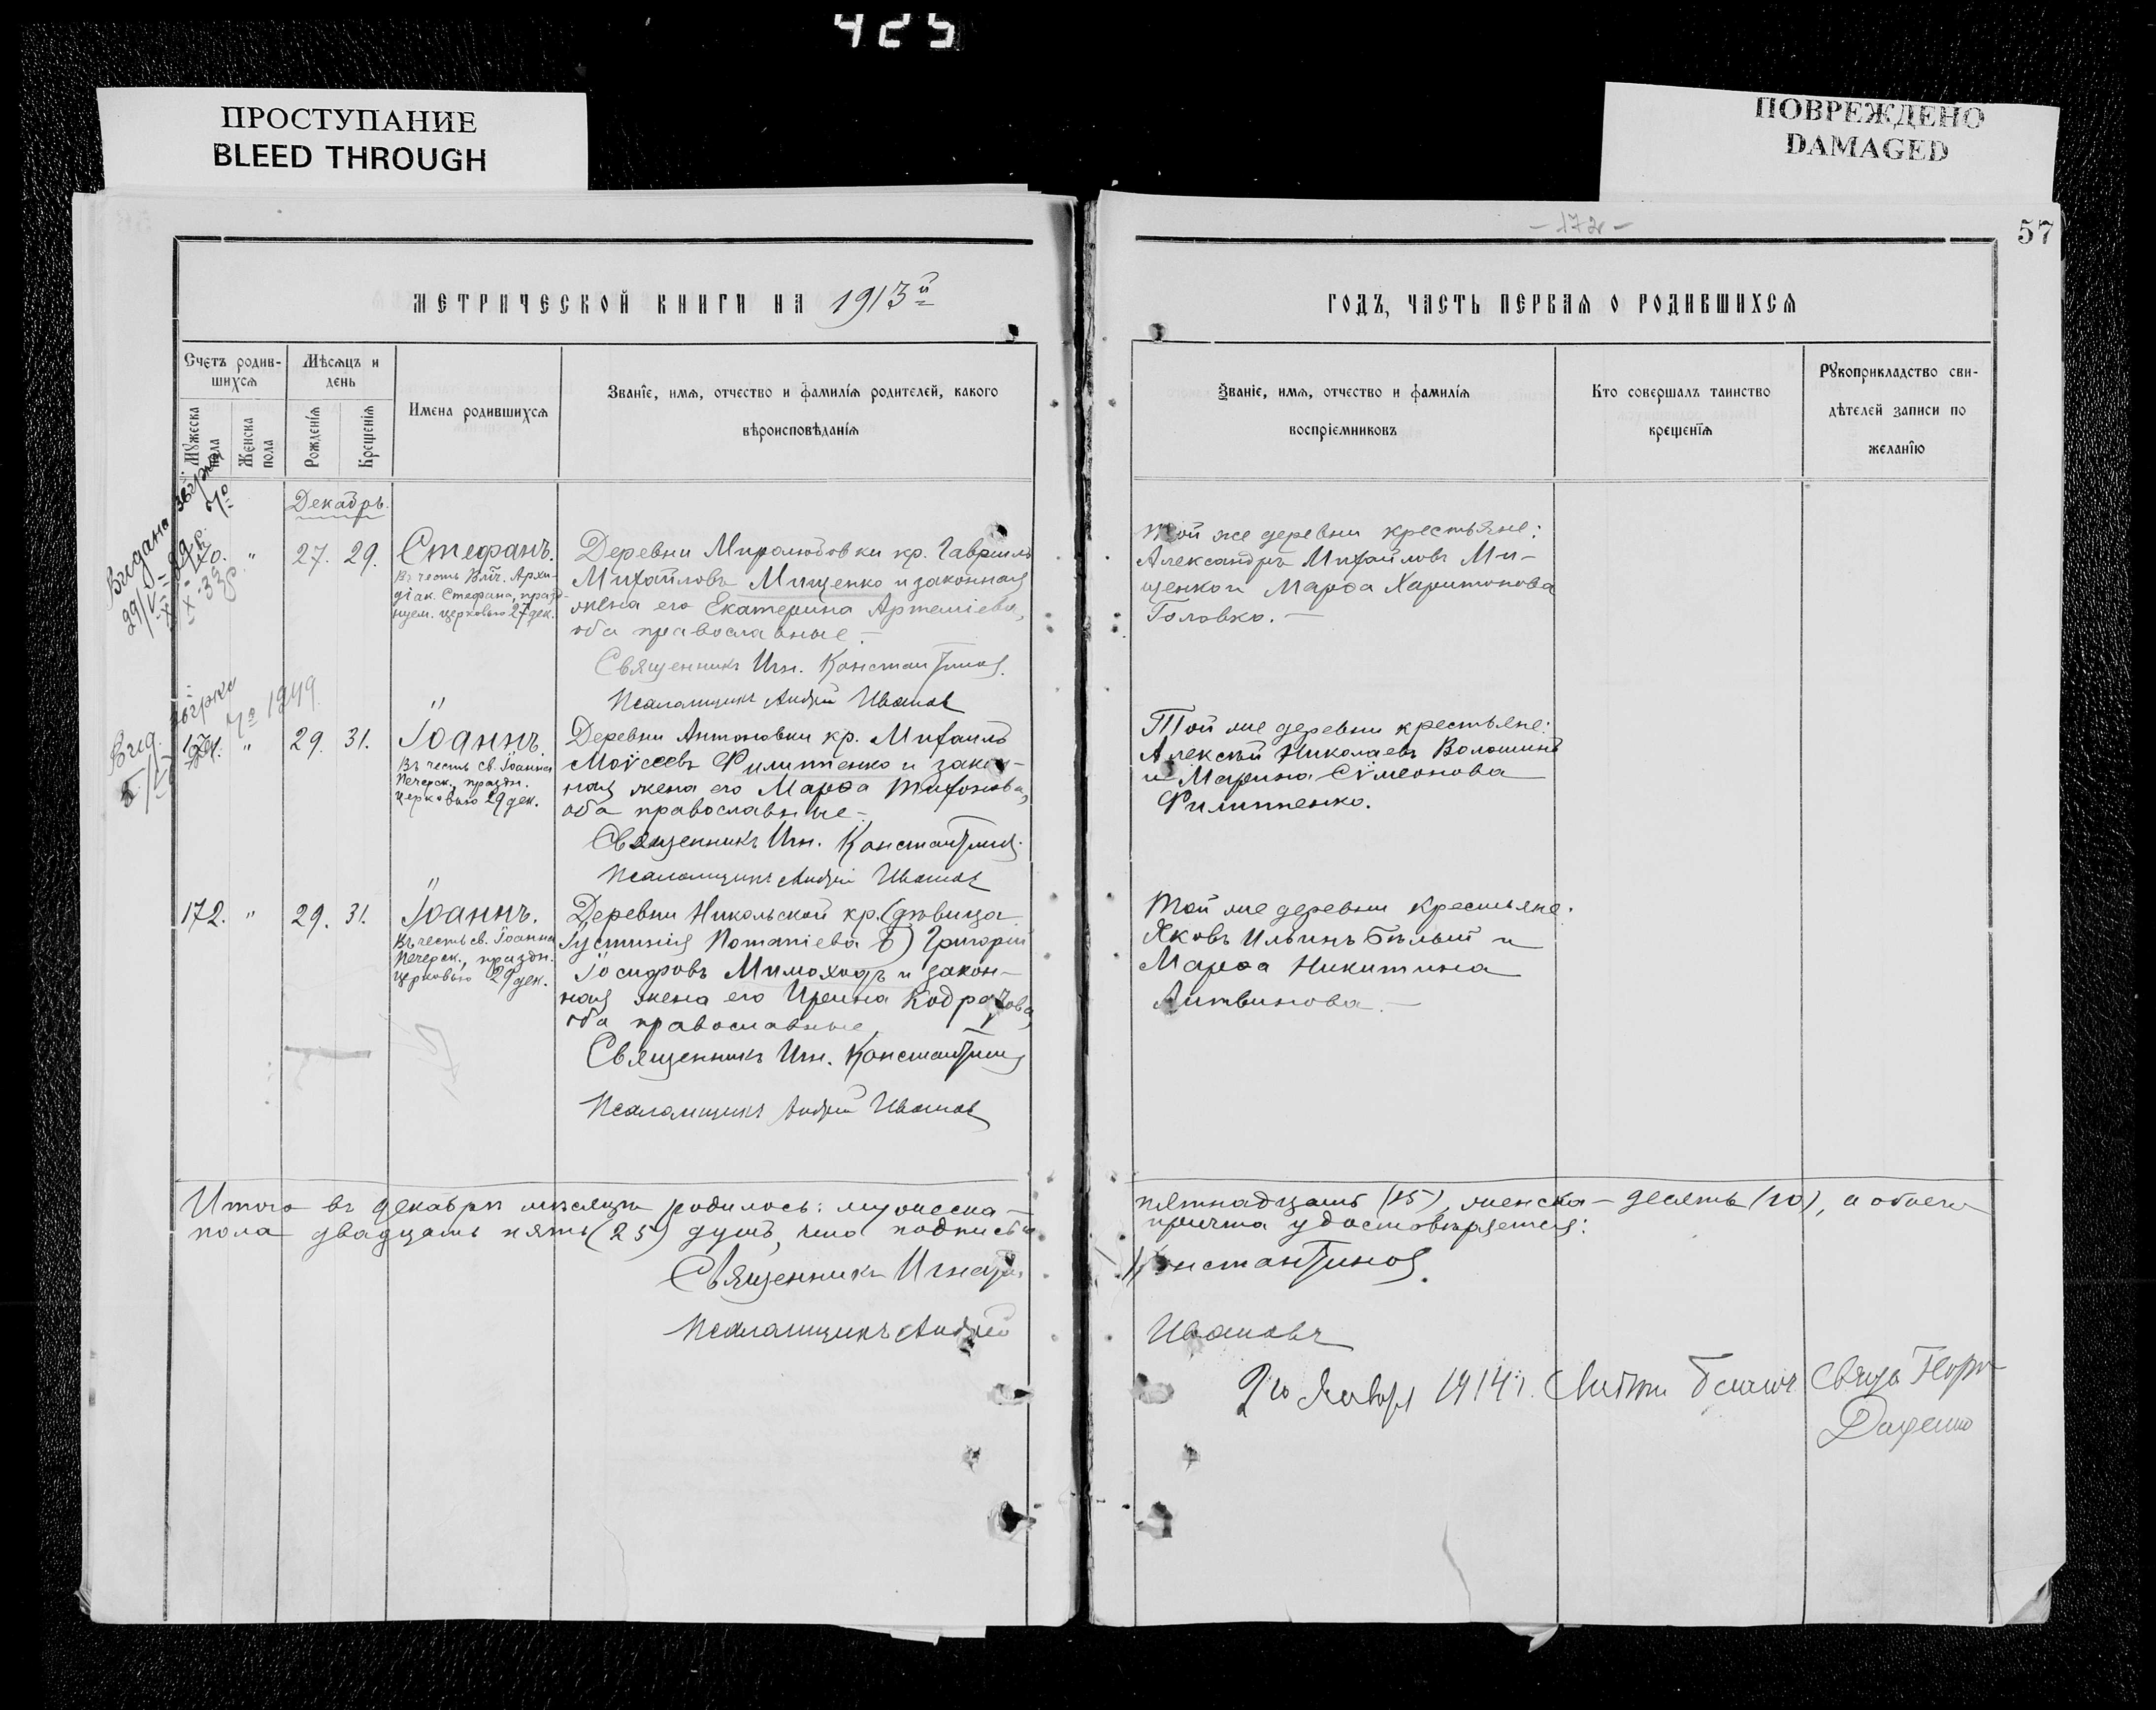 425
ПРОСТУПАНИЕ
BLEED THROUGH
ПОВРЕЖДЕНО
DAMAGED
57
- 172 -
МЕТРИЧЕСКОЙ КНИГИ НА 1913й
ГОДЪ, ЧАСТЬ ПЕРВАЯ О РОДИВШИХСЯ
Счетъ родив-
шихся
Мужеска
пола
Женска
пола
Мѣсяцъ и
день
Рожденія
Крещенія
Имена родившихся
Званіе, имя, отчество и фамилія родителей, какого
вѣроисповѣданія
Званіе, имя, отчество и фамилія
воспріемниковъ
Кто совершалъ таинство
крещенія
Рукоприкладство сви-
дѣтелей записи по
желанію
Декабрь.
170. " 27. 29. Стефанъ.
Въ честь Архи-
діак. Стефана, празд-
нуем. церковью 27 дек.
Деревни Миролюбовки кр. Гавріилъ
Михайловъ Мищенко и законная
жена его Екатерина Артеміева,
оба православные.-
Священникъ Игн. Константинов.
Псаломщикъ Андрей Ивашов
Той же деревни крестьяне:
Александръ Михайловъ Ми-
щенко и Марѳа Харитонова
Головко. -
171. " 29. 31. Іоаннъ.
Въ честь св. Іоанна
Печерск., праздн.
церковью 29 дек.
Деревни Антоновки кр. Михаилъ
Моѵсеевъ Филипенко и закон-
ная жена его Марѳа Тихонова,
оба православные.-
Священникъ Игн. Константинов.
Псаломщикъ Андрей Ивашов
Той же деревни крестьяне:
Алексѣй Николаевъ Волошинъ
и Марина Сѵмеонова
Филипенко.
172. " 29. 31. Іоаннъ.
Въ честь св. Іоанна
Печерск., праздн.
церковью 29 дек.
Деревни Никольской кр. (дѣвица
Іустинія Потапіева б) Григорій
Іосифовъ Мимоходъ и закон-
ная жена его Ирина
оба православные,
Священникъ Игн. Константинов
Псаломщикъ Андрей Ивашов
Той же деревни крестьяне:
Яковъ Ильинъ Бѣлый и
Марѳа Никитина
Литвинова. -
Итого въ декабрѣ мѣсяцѣ родилось: мужеска - пятнадцать (15), женска - десять (10), а обоего
пола двадцать пять (25) душъ, что подписью причта удостовѣряется:
Священникъ Игнатій Константинов.
Псаломщикъ Андрей Ивашовъ
9го Января 1914 г.